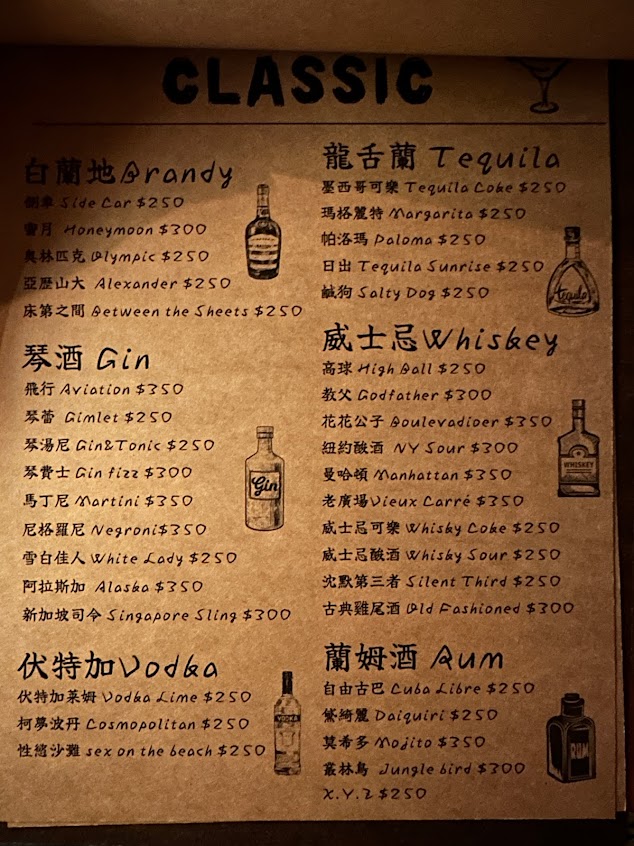 CLASSIC
白蘭地 Brandy
側車 Side Car $250
蜜月 Honeymoon $300
奧林匹克 Olympic $250
亞歷山大 Alexander $250
床第之間 Between the Sheets $250
琴酒 Gin
飛行 Aviation $350
琴蕾 Gimlet $250
琴湯尼 Gin&Tonic $250
琴費士 Gin fizz $300
馬丁尼 Martini $350
尼格羅尼 Negroni $350
雪白佳人 White Lady $250
阿拉斯加 Alaska $350
新加坡司令 Singapore Sling $300
Gin
伏特加 Vodka
伏特加萊姆 Vodka Lime $250
柯夢波丹 Cosmopolitan $250
性慾沙灘 sex on the beach $250
VODKA
龍舌蘭 Tequila
墨西哥可樂 Tequila Coke $250
瑪格麗特 Margarita $250
帕洛瑪 Paloma $250
日出 Tequila Sunrise $250
鹹狗 Salty Dog $250
Tequila
威士忌 Whiskey
高球 High Ball $250
教父 Godfather $300
花花公子 Boulevadioer $350
紐約酸酒 NY Sour $300
曼哈頓 Manhattan $350
老廣場 Vieux Carré $350
威士忌可樂 Whisky Coke $250
威士忌酸酒 Whisky Sour $250
沈默第三者 Silent Third $250
古典雞尾酒 Old Fashioned $300
WHISKEY
蘭姆酒 Rum
自由古巴 Cuba Libre $250
黛綺麗 Daiquiri $250
莫希多 Mojito $350
叢林鳥 Jungle bird $300
X.Y.Z $250
RUM